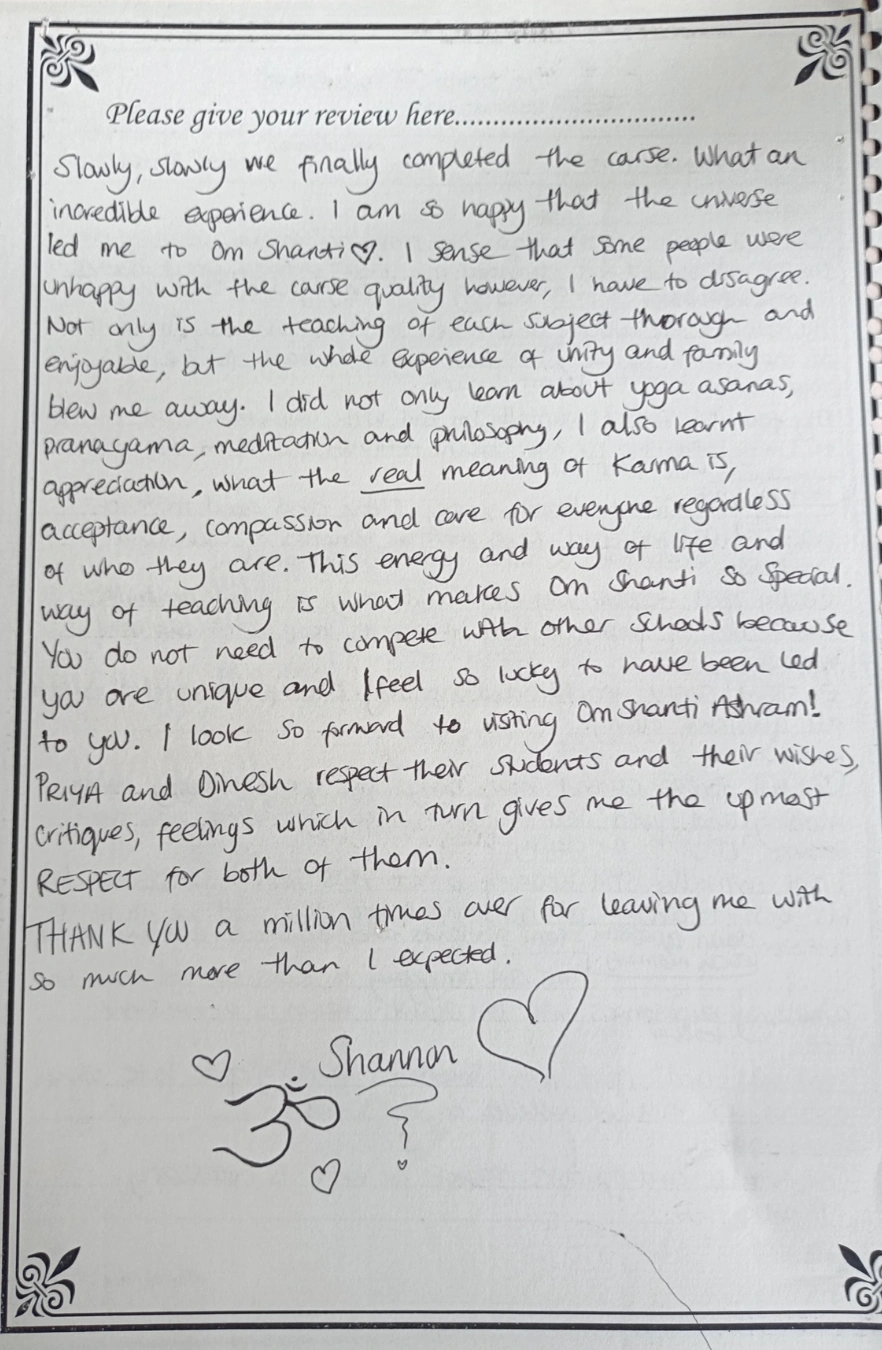 Please give your review here..............................
Slowly, slowly we finally completed the course. What an
incredible experience. I am so happy that the universe
led me to Om Shanti♡. I sense that some people were
unhappy with the course quality however, I have to disagree.
Not only is the teaching of each subject thorough and
enjoyable, but the whole experience of unity and family
blew me away. I did not only learn about yoga asanas,
pranayama, meditation and philosophy, I also learnt
appreciation, what the real meaning of Karma is,
acceptance, compassion and care for everyone regardless
of who they are. This energy and way of life and
way of teaching is what makes Om Shanti so special.
You do not need to compete with other schools because
you are unique and I feel so lucky to have been led
to you. I look so forward to visiting Om Shanti Ashram!
PRIYA and Dinesh respect their students and their wishes,
critiques, feelings which in turn gives me the upmost
RESPECT for both of them.
THANK YOU a million times over for leaving me with
so much more than I expected.
Shannon ♡
ॐ